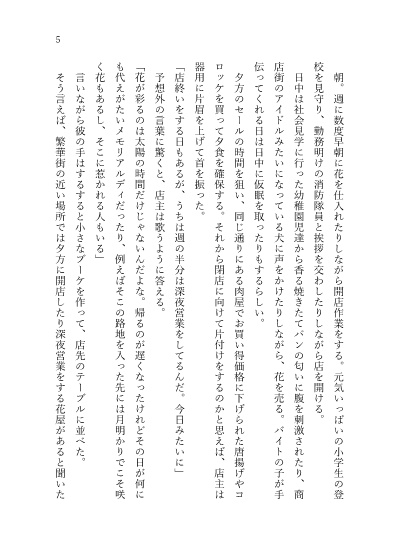 5
朝。週に数度早朝に花を仕入れたりしながら開店作業をする。元気いっぱいの小学生の登
校を見守り、勤務明けの消防隊員と挨拶を交わしたりしながら店を開ける。
日中は社会見学に行った幼稚園児達から香る焼きたてパンの匂いに腹を刺激されたり、商
店街のアイドルみたいになっている犬に声をかけたりしながら、花を売る。バイトの子が手
伝ってくれる日は日中に仮眠を取ったりもするらしい。
夕方のセールの時間を狙い、同じ通りにある肉屋でお買い得価格に下げられた唐揚げやコ
ロッケを買って夕食を確保する。それから閉店に向けて片付けをするのかと思えば、店主は
器用に片眉を上げて首を振った。
「店終いをする日もあるが、うちは週の半分は深夜営業をしてるんだ。今日みたいに」
予想外の言葉に驚くと、店主は歌うように答える。
「花が彩るのは太陽の時間だけじゃないんだよな。帰るのが遅くなったけれどその日が何に
も代えがたいメモリアルディだったり、例えばそこの路地を入った先には月明かりでこそ咲
く花もあるし、そこに惹かれる人もいる」
言いながら彼の手はするすると小さなブーケを作って、店先のテーブルに並べた。
そう言えば、繁華街の近い場所では夕方に開店したり深夜営業をする花屋があると聞いた